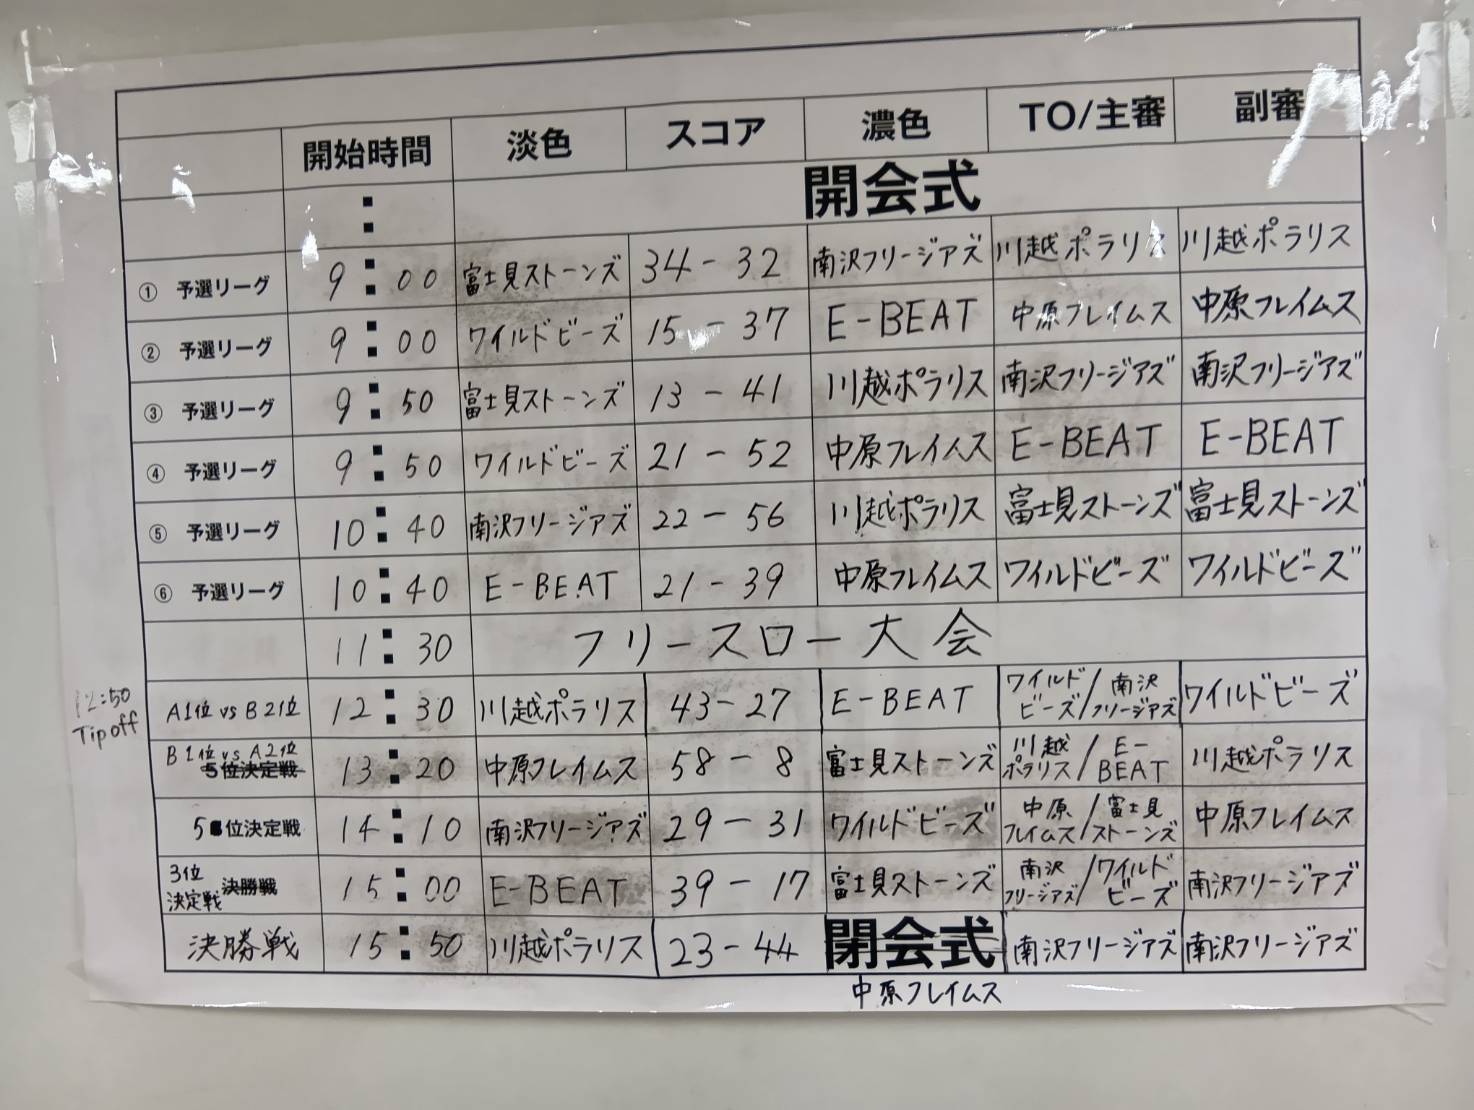 開始時間 淡色 スコア 濃色 TO/主審 副審
: 開会式
① 予選リーグ 9:00 富士見ストーンズ 34-32 南沢フリージアズ 川越ポラリス 川越ポラリス
② 予選リーグ 9:00 ワイルドビーズ 15-37 E-BEAT 中原フレイムス 中原フレイムス
③ 予選リーグ 9:50 富士見ストーンズ 13-41 川越ポラリス 南沢フリージアズ 南沢フリージアズ
④ 予選リーグ 9:50 ワイルドビーズ 21-52 中原フレイムス E-BEAT E-BEAT
⑤ 予選リーグ 10:40 南沢フリージアズ 22-56 川越ポラリス 富士見ストーンズ 富士見ストーンズ
⑥ 予選リーグ 10:40 E-BEAT 21-39 中原フレイムス ワイルドビーズ ワイルドビーズ
11:30 フリースロー大会
12:50
Tip off
A1位 vs B2位 12:30 川越ポラリス 43-27 E-BEAT ワイルドビーズ/南沢フリージアズ ワイルドビーズ
B1位 vs A2位
5位決定戦 13:20 中原フレイムス 58-8 富士見ストーンズ 川越ポラリス/E-BEAT 川越ポラリス
5位決定戦 14:10 南沢フリージアズ 29-31 ワイルドビーズ 中原フレイムス/富士見ストーンズ 中原フレイムス
3位
決定戦 決勝戦 15:00 E-BEAT 39-17 富士見ストーンズ 南沢フリージアズ/ワイルドビーズ 南沢フリージアズ
決勝戦 15:50 川越ポラリス 23-44 閉会式 南沢フリージアズ 南沢フリージアズ
中原フレイムス